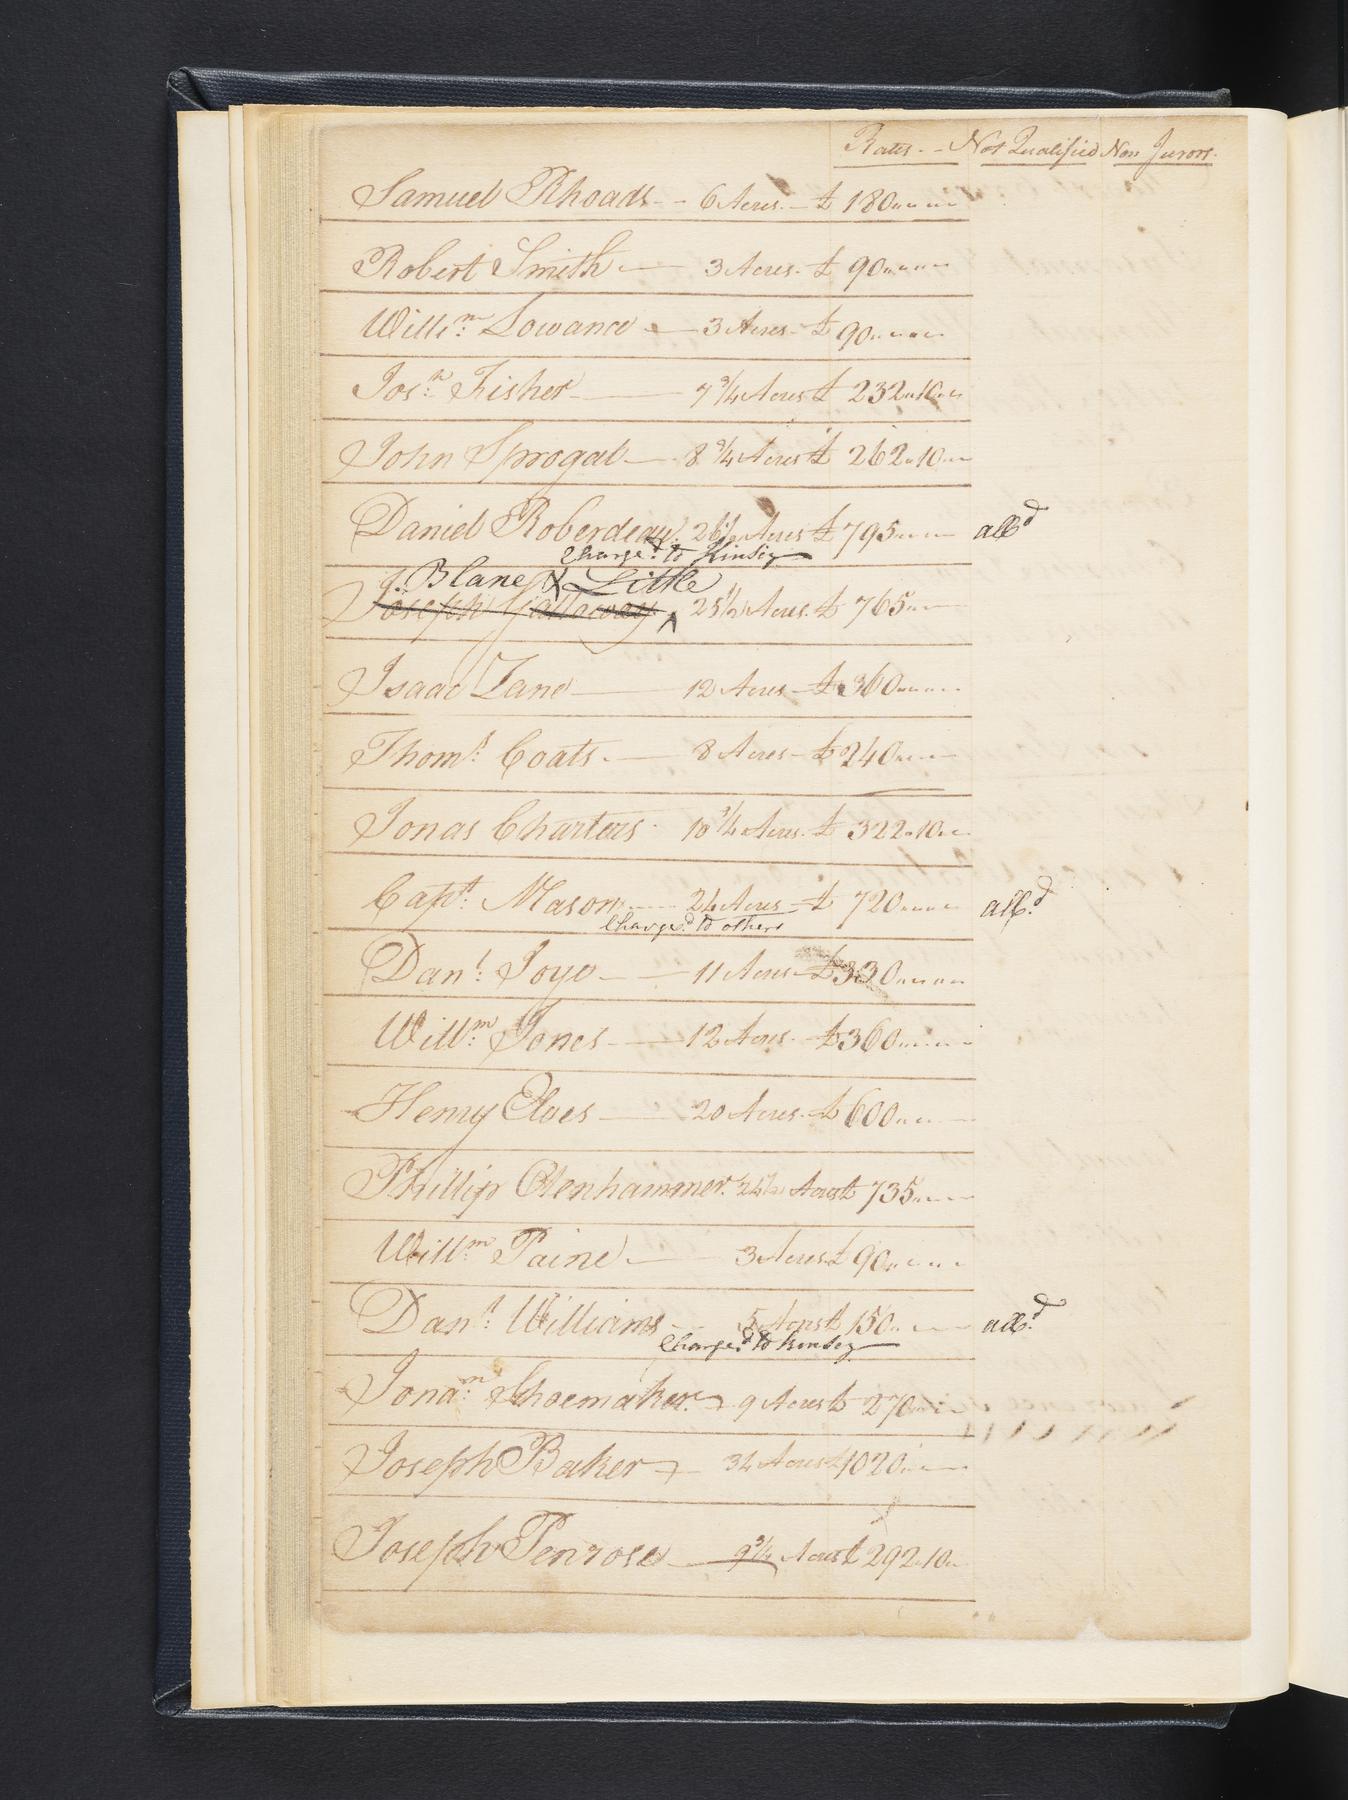 Rates - - Not Qualified Non Jurors.
Samuel Rhoads - - 6 Acres. - £ 180
Robert Smith - 3 Acres - £ 90
Willm. Lowance - 3 Acres - £ 90
Josh. Fisher - 7 3/4 Acres £ 232 .. 10
John Sprogal - 8 3/4 Acres £ 262 .. 10
Daniel Roberdeau. 26 1/2 Acres £ 795 abd
Charged to Kinsey
J. Blane & Litle
Joseph Gallaway ^ 25 1/2 Acres. £ 765
Isaac Zane - 12 Acres - £ 360
Thoms. Coats. - 8 Acres - £ 240
Jonas Charters 10 3/4 Acres. £ 322 .. 10
Capt. Mason 24 Acres - £ 720 abd
Charged to others
Danl. Joyo - 11 Acres - £ 330
Willm. Jones - 12 Acres. - £ 360
Henry Elves - 20 Acres. £ 600
Phillip Olenhammer. 24 1/2 Acres £ 735
Willm. Paine - 3 Acres £ 90
Danl. Williams - 5 Acres £ 150 abd
Charged to Kinsey
Jonan. Shoemaker - 9 Acres £ 270
Joseph Baker - 34 Acres £ 1020
Joseph Penrose - 9 3/4 Acres £ 292 .. 10